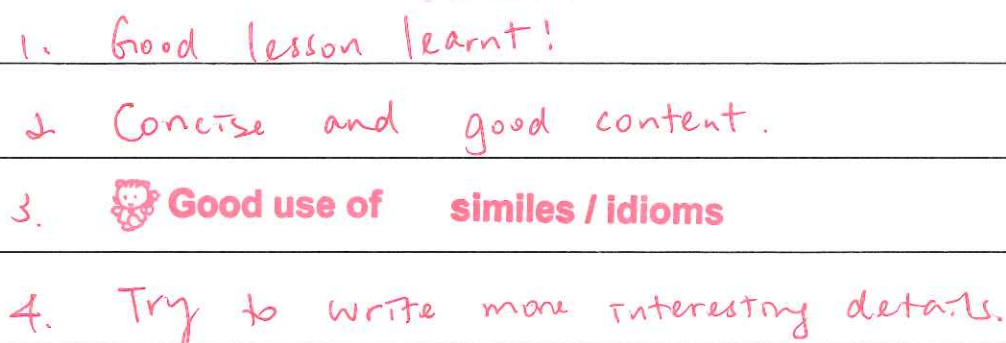 1. Good lesson learnt!
2 Concise and good content.
3. Good use of similes / idioms
4. Try to write more interesting details.